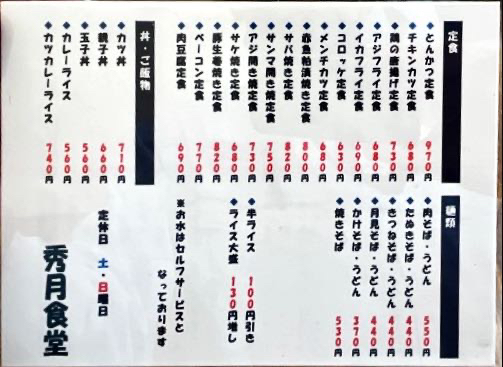 定食
◆とんかつ定食 970円
◆チキンカツ定食 680円
◆鶏の唐揚げ定食 730円
◆アジフライ定食 680円
◆イカフライ定食 690円
◆コロッケ定食 630円
◆メンチカツ定食 680円
◆赤魚粕漬焼き定食 800円
◆サバ焼き定食 820円
◆サンマ開き焼定食 750円
◆アジ開き焼定食 730円
◆サケ焼き定食 680円
◆豚生姜焼き定食 820円
◆ベーコン定食 770円
◆肉豆腐定食 690円
丼・ご飯物
◆カツ丼 710円
◆親子丼 660円
◆玉子丼 560円
◆カレーライス 560円
◆カツカレーライス 740円
麺類
◆肉そば・うどん 550円
◆たぬきそば・うどん 440円
◆きつねそば・うどん 440円
◆月見そば・うどん 440円
◆かけそば・うどん 370円
◆焼きそば 530円
◆半ライス 100円引き
◆ライス大盛 130円増し
※お水はセルフサービスと
なっております
定休日 土・日曜日
秀月食堂